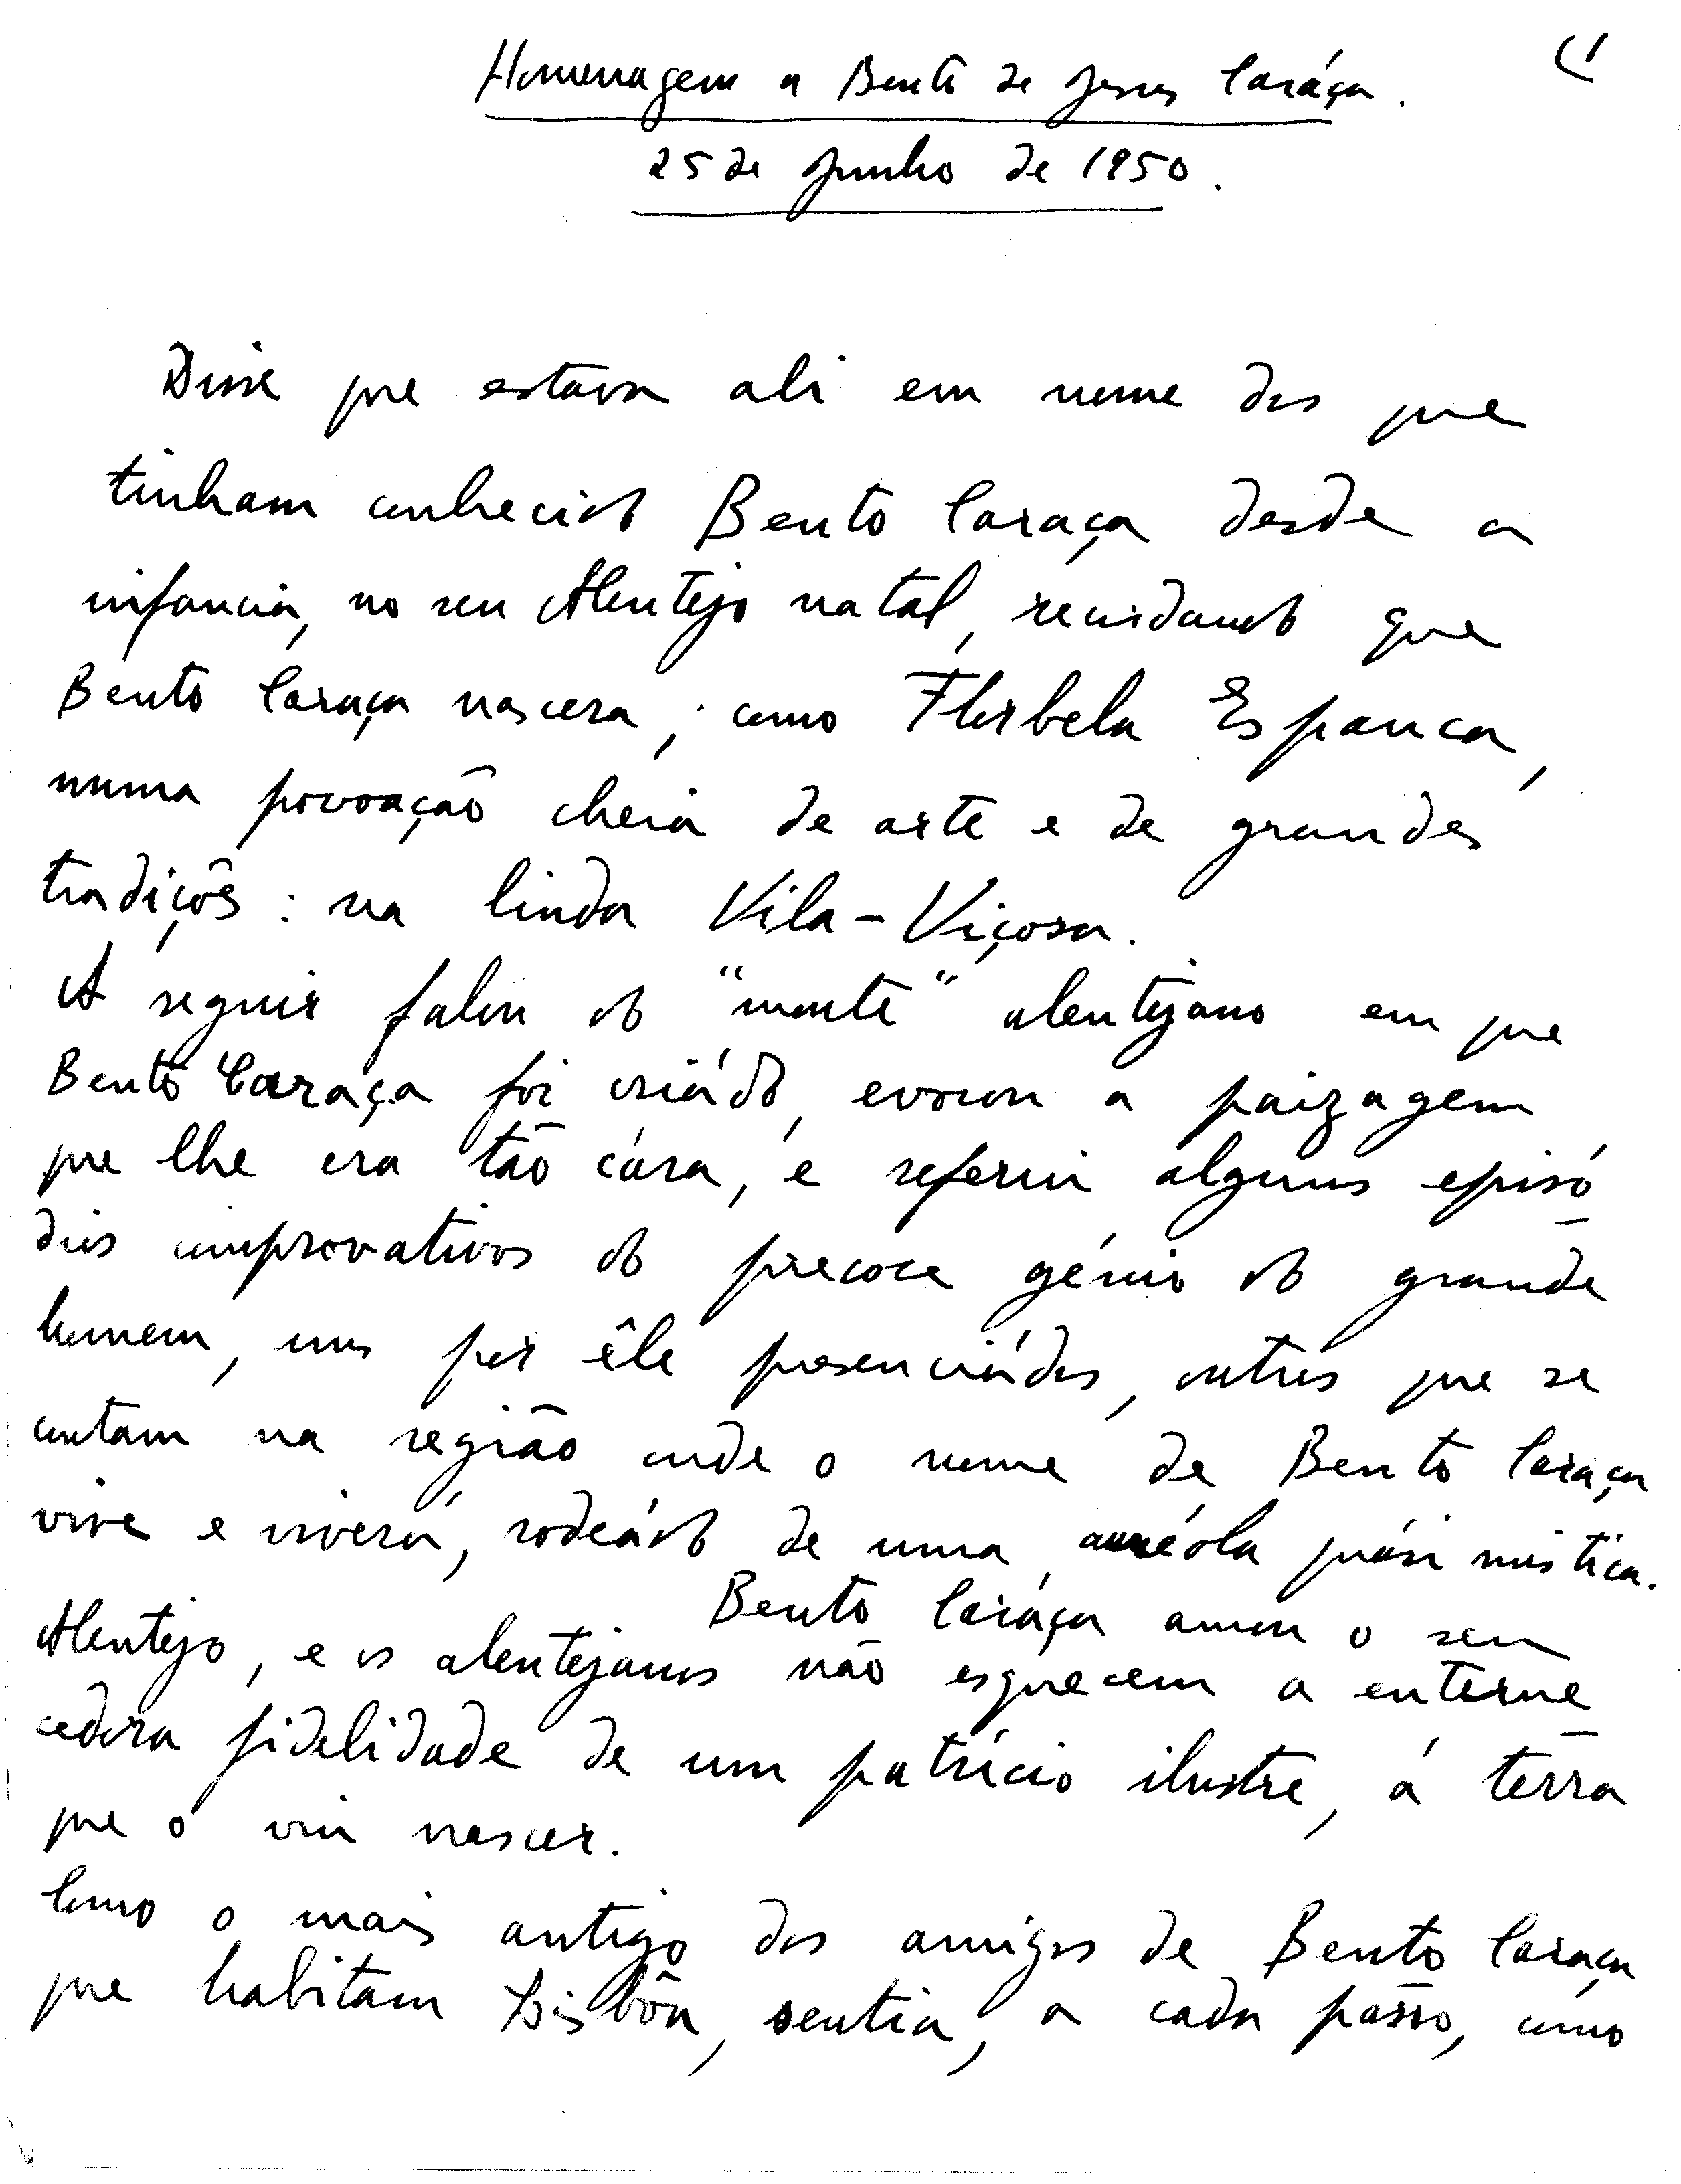 Homenagem a Bento de Jesus Caráça.
25 de Junho de 1950.
Disse que estava ali em nome dos que
tinham conhecido Bento Caraça desde a
infancia, no seu Alentejo natal, recordando que
Bento Caraça nascera, como Florbela Espanca,
numa povoação cheia de arte e de grandes
tradições: na linda Vila-Viçosa.
A seguir falou do "monte" alentejano em que
Bento Caraça foi criádo, evocou a paizagem
que lhe era tão cára, e referiu alguns episó
dios comprovativos do precoce génio do grande
homem, uns por êle presenciádos, outros que se
contam na região onde o nome de Bento Caraça
vive e viverá, rodeádo de uma auréola quási mistica.
Bento Caráça amou o seu
Alentejo, e os alentejanos não esquecem a enterne
cedora fidelidade de um patrício ilustre, á terra
que o viu nascer.
Como o mais antigo dos amigos de Bento Caraça
que habitam Lisbôa, sentia, a cada passo, como